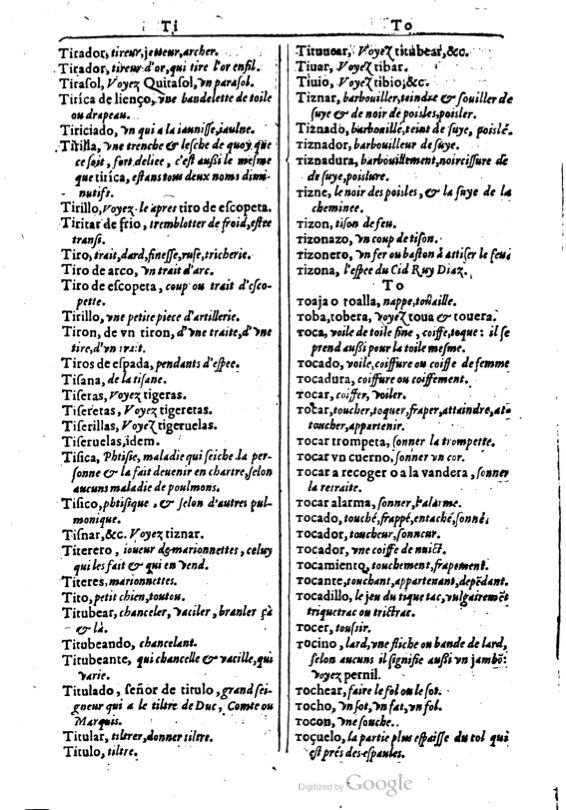 Ti
Tirador, tireur, jetteur, archer.
Tirador, tireur d'or, qui tire l'or en fil.
Tirasol, Voyez Quitasol, vn parasol.
Tirica de lienço, vne bandelette de toile
ou drapeau.
Tiriciado, vn qui a la iaunisse, iaulne.
Tirilla, vne trenche & lesche de quoy que
ce soit, fort deliee, c'est aussi le mesme
que tirica, estans tous deux noms dimi-
nutifs.
Tirillo, Voyez le apres tiro de escopeta.
Tiritar de frio, tremblotter de froid, estre
transi.
Tiro, trait, dard, finesse, ruse, tricherie.
Tiro de arco, vn trait d'arc.
Tiro de escopeta, coup ou trait d'esco-
pette.
Tirillo, vne petite piece d'artillerie.
Tiron, de vn tiron, d'vne traite, d'vne
tire, d'vn trait.
Tiros de espada, pendants d'espee.
Tisana, de la tisane.
Tiseras, Voyez tigeras.
Tiseretas, Voyez tigeretas.
Tiserillas, Voyez tigeruelas.
Tiseruelas, idem.
Tisica, Phtisie, maladie qui seiche la per-
sonne & la fait deuenir en chartre, selon
aucuns maladie de poulmons.
Tisico, phtisique, & selon d'autres pul-
monique.
Tisnar, &c. Voyez tiznar.
Titerero, ioueur de marionnettes, celuy
qui les fait & qui en vend.
Titeres, marionnettes.
Tito, petit chien, toutou.
Titubear, chanceler, vaciler, branler çà
& là.
Titubeando, chancelant.
Titubeante, qui chancelle & vacille, qui
varie.
Titulado, señor de titulo, grand sei-
gneur qui a le tiltre de Duc, Comte ou
Marquis.
Titular, tiltrer, donner tiltre.
Titulo, tiltre.
To
Voyez titubear, &c.
Tiuar, Voyez tibar.
Tiuio, Voyez tibio, &c.
Tiznar, barbouiller, teindre & souiller de
suye & de noir de poisles, poisler.
Tiznado, barbouillé, teint de suye, poislé.
Tiznador, barbouilleur de suye.
Tiznadura, barbouillement, noircissure de
de suye, poislure.
Tizne, le noir des poisles, & la suye de la
cheminee.
Tizon, tison de feu.
Tizonazo, vn coup de tison.
Tizonero, vn fer ou baston à attiser le feu
Tizona, l'espee du Cid Ruy Diaz.
To
Toaja o toalla, nappe, touaille.
Toba, tobera, voyez toua & touera.
Toca, voile de toile fine, coiffe, toque: il se
prend aussi pour la toile mesme.
Tocado, voile, coiffure ou coiffe de femme
Tocadura, coiffure ou coiffement.
Tocar, coiffer, voiler.
Tocar, toucher, toquer, fraper, attaindre, at-
toucher, appartenir.
Tocar trompeta, sonner la trompette.
Tocar vn cuerno, sonner vn cor.
Tocar a recoger o a la vandera, sonner
la retraite.
Tocar alarma, sonner, l'alarme.
Tocado, touché, frappé, entaché, sonné,
Tocador, toucheur, sonneur.
Tocador, vne coiffe de nuict.
Tocamiento, touchement, frapement.
Tocante, touchant, appartenant, depẽdant.
Tocadillo, le jeu du tique tac, vulgairemẽt
triquetrac ou trictrac.
Tocer, toussir.
Tocino, lard, vne fliche ou bande de lard,
selon aucuns il signifie aussi vn jambõ:
voyez pernil.
Tochear, faire le fol ou le sot.
Tocho, vn sot, vn fat, vn fol.
Tocon, vne souche.
Toçuelo, la partie plus espaisse du col qui
est prés des espaules.
Digitized by Google